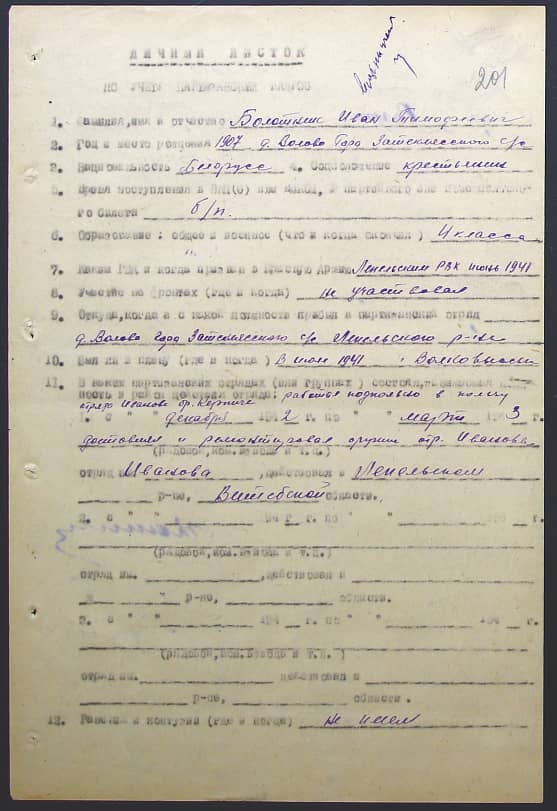 201
ЛИЧНЫЙ ЛИСТОК
ПО УЧЕТУ ПАРТИЗАНСКИХ КАДРОВ
1. Фамилия, имя и отчество Болотник Иван Тимофеевич
2. Год и место рождения 1907 д. Волова Гора
3. Национальность Белорусс 4. Соцположение крестьянин
5. Время поступления в ВКП(б) или ВЛКСМ, № партийного или комсомольско-
го билета б/п.
6. Образование: общее и военное (что и когда окончил) 4 класса
7. Каким РВК и когда призван в Красную Армию Лепельским РВК июнь 1941
8. Участие на фронтах (где и когда) не участвовал
9. Откуда, когда и с какой должности прибыл в партизанский отряд
д. Волова Гора с/с Лепельского р-на
10. Был ли в плену (где и когда) В июле 1941 г. Волковыск
11. В каких партизанских отрядах (или группах) состоял,
работал подпольно в пользу
отряда Иванова бр.
1. с " " декабря 1942 г. по " " март 1943 г.
доставлял и ремонтировал оружие отр. Иванова
(рядовой, ком. взвода и т.д.)
отряд Иванова, действовал в Лепельском
р-не, Витебской области.
2. с " " 194 г. по " " 194 г.
(рядовой, ком. взвода и т.д.)
отряд им. , действовал в
в р-не, области.
3. с " " 194 г. по " " 194 г.
(рядовой, ком. взвода и т.д.)
отряд им. действовал в
р-не, области.
12. Ранения и контузии (где и когда) не имел